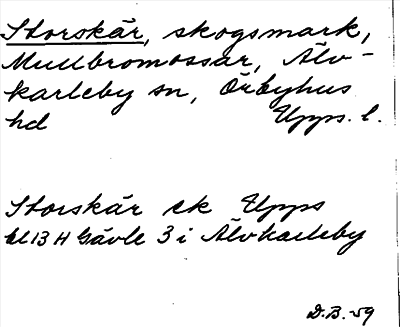 Storskär, skogsmark,
Mullbromossar, Älv-
karleby sn, Örbyhus
hd Upps. l.
Storskär ek Upps
bl 13 H Gävle 3 i Älvkarleby
D.B. 59